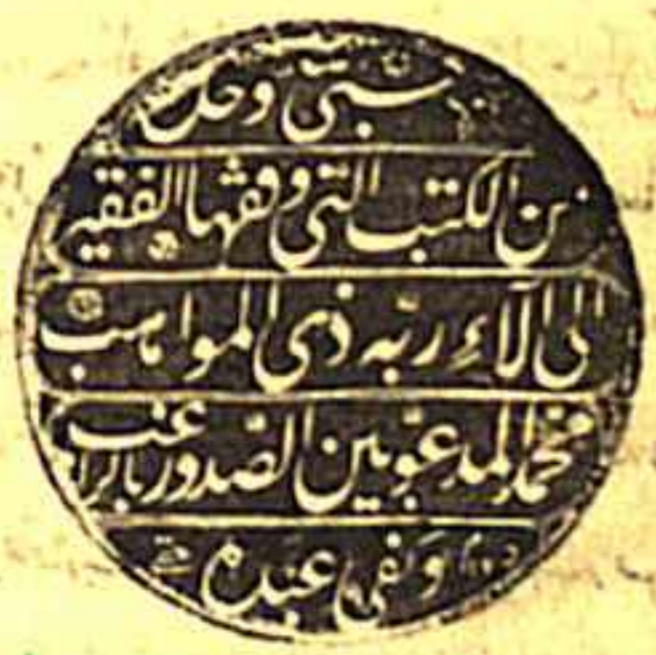 حسبى وحده
من الكتب التى وقفها الفقير
الى آلاء ربّه ذى المواهب
محمد المدعو بين الصدور بالراغب
وكفى عبده